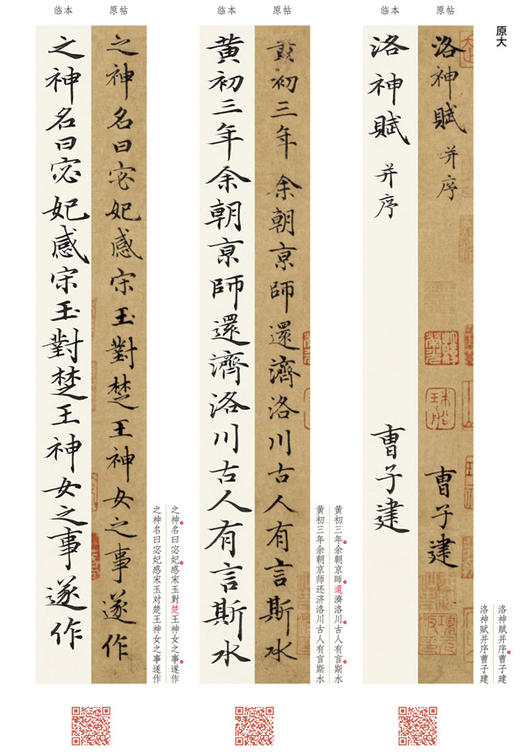 原大
原帖
洛神賦 并序 曺子建
临本
洛神賦 并序 曺子建
洛神賦并序曹子建
洛神赋并序曹子建
原帖
黄初三年余朝亰師還濟洛川古人有言斯水
临本
黄初三年余朝亰師還濟洛川古人有言斯水
黄初三年余朝京師還濟洛川古人有言斯水
黄初三年余朝京师还济洛川古人有言斯水
原帖
之神名曰宓妃感宋玉對楚王神女之事遂作
临本
之神名曰宓妃感宋玉對楚王神女之事遂作
之神名曰宓妃感宋玉對楚王神女之事遂作
之神名曰宓妃感宋玉对楚王神女之事遂作